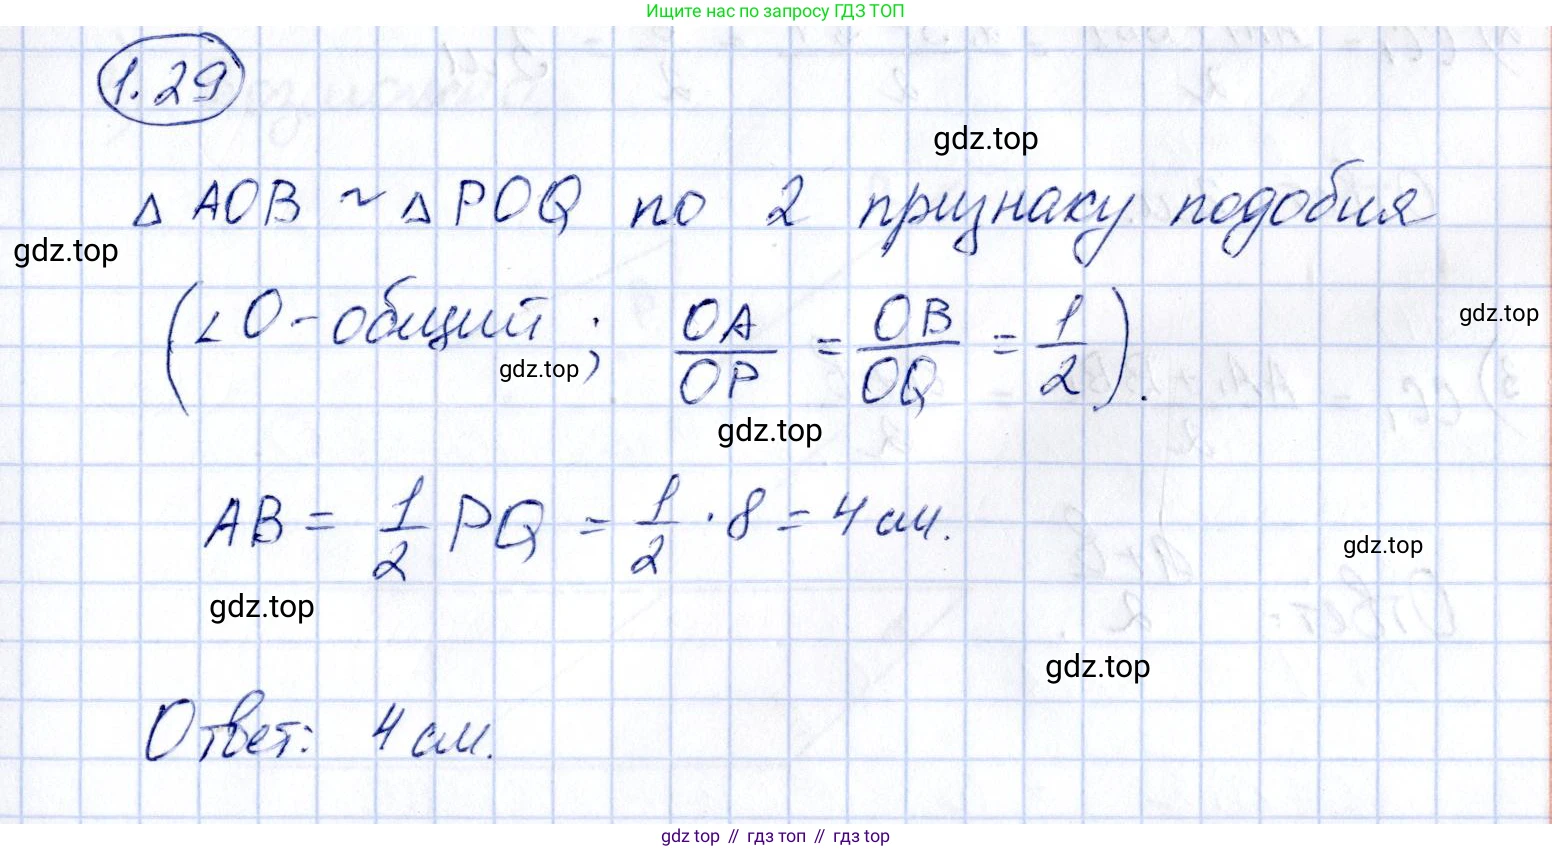 Ищите нас по запросу ГДЗ ТОП
1.29
gdz.top
△ AOB ~ △ POQ по 2 признаку подобия
gdz.top
(∠O - общий; OA/OP = OB/OQ = 1/2).
gdz.top
gdz.top
gdz.top
AB = 1/2 PQ = 1/2 · 8 = 4 см.
gdz.top
gdz.top
gdz.top
Ответ: 4 см.
gdz top // гдз топ // гдз top